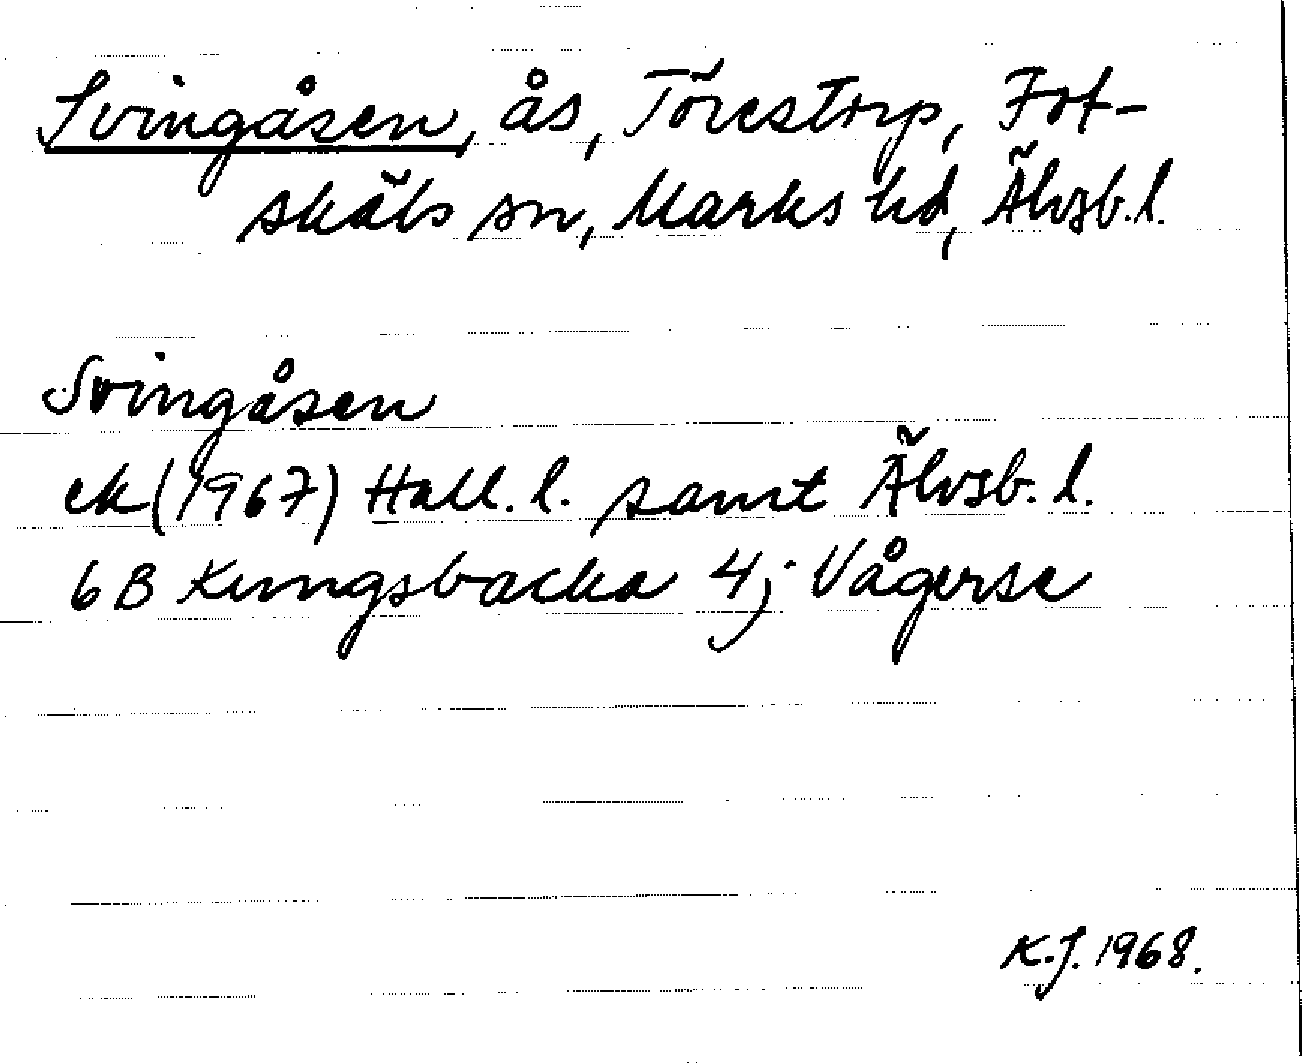 Svingåsen, ås, Törestorp, Fot-
skäls sn, Marks hd, Älvsb. l.
Svingåsen
ek (1967) Hall. l. samt Älvsb. l.
6 B Kungsbacka 4j Vågerse
K.J. 1968.